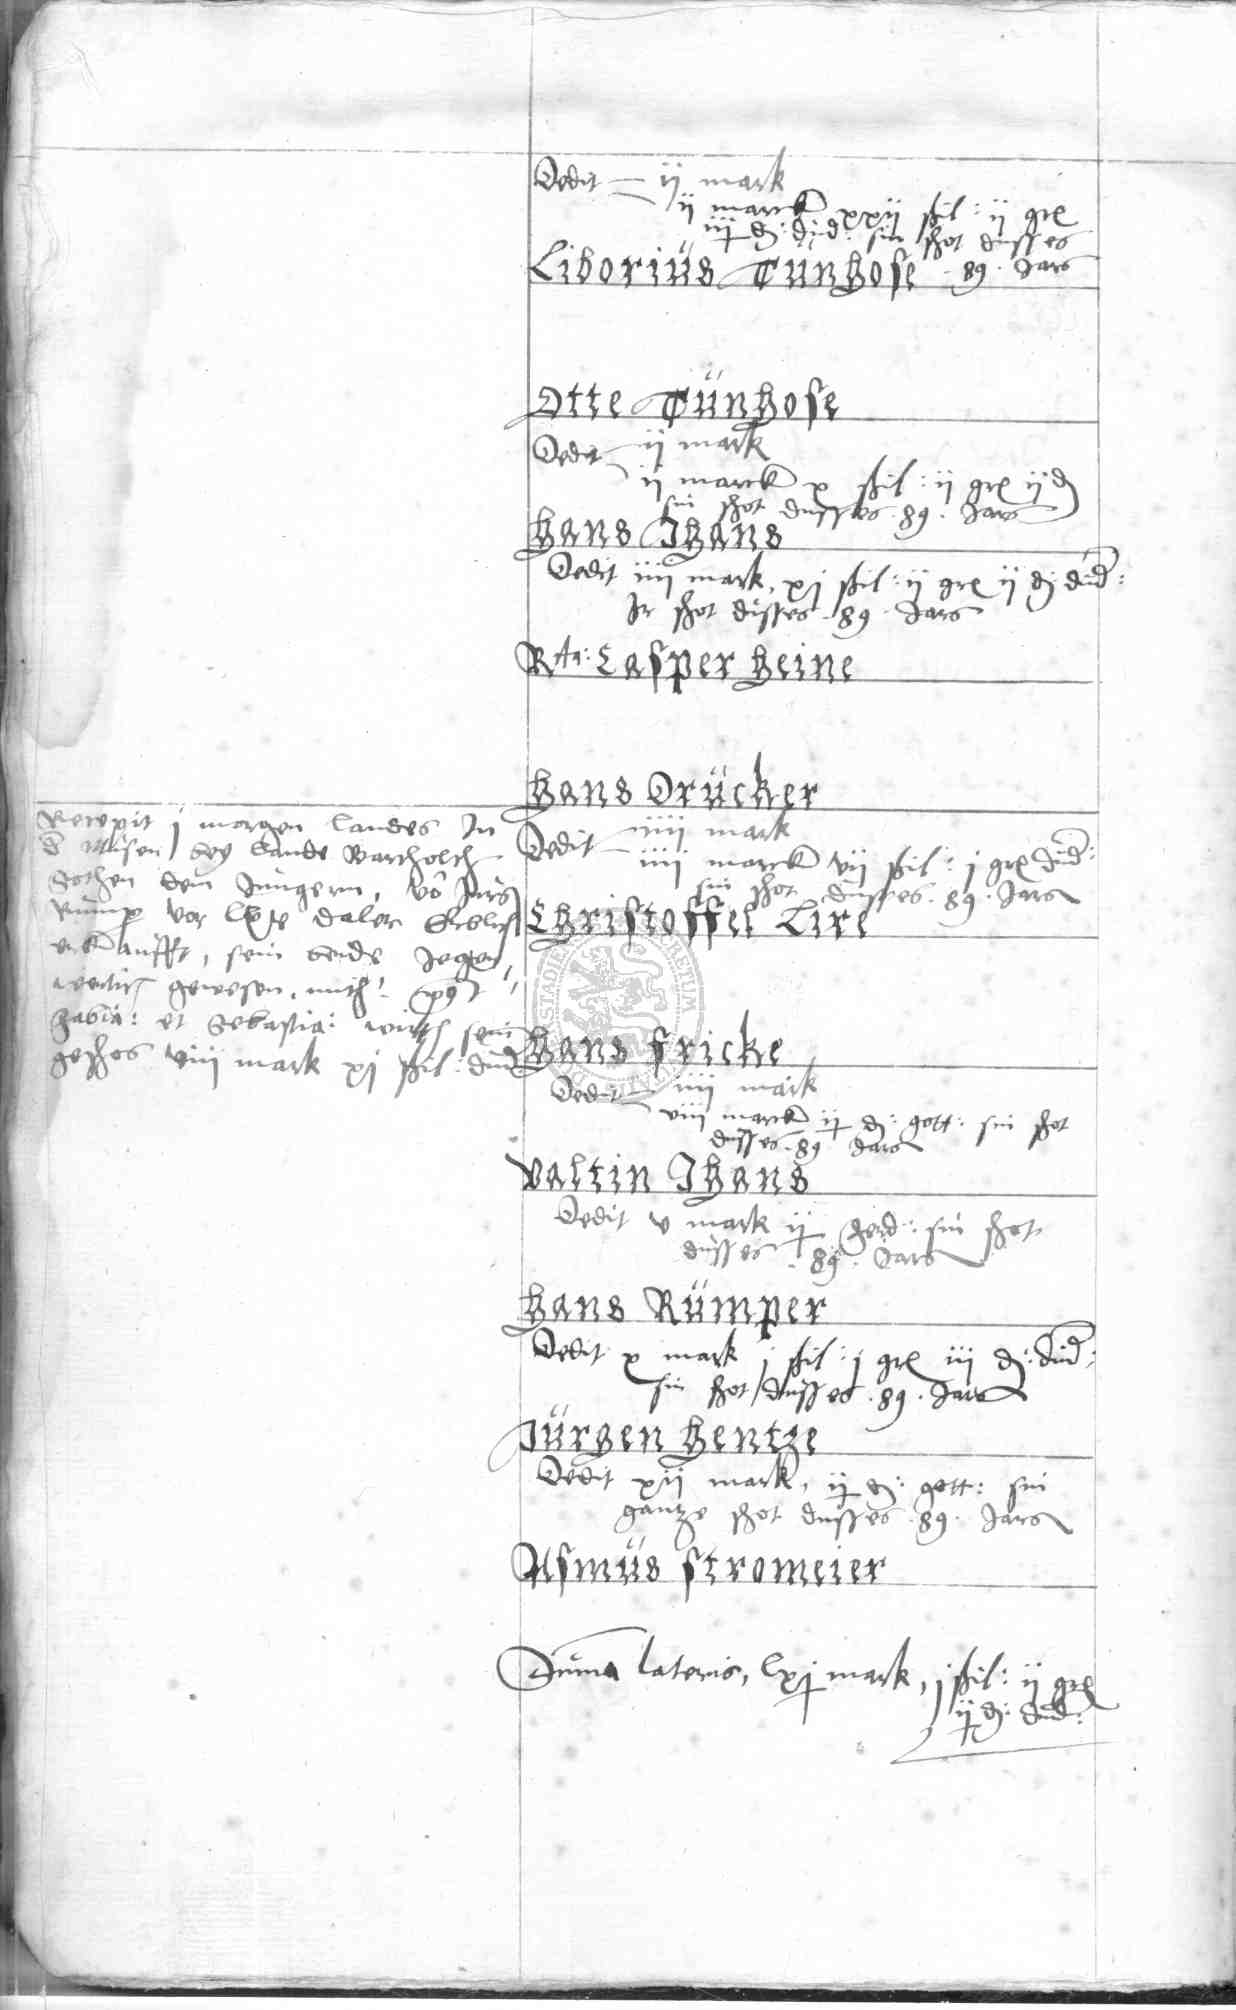 Dedit — ij mark
ij marck xxij ßil: ij gr
iij d: dud: sin shot dusses
Liborius Tünhose · 89 · Jars
Otte Tünhose
Dedit ij mark
ij marck x ßil: ij gr ij d
sin shot dusses · 89 · Jars
Hans Ihans
Dedit iiij mark, xj ßil: ij gr ij d: dud:
Ir shot dusses · 89 · Jars
Casper Heine
Hans Drücker
Recepit j morgen landes In
Dedit iiij mark
iiij marck vij ßil: j gr dud:
sin shot dusses · 89 · Jars
Christoffel Lire
dem Jungern, vo Jurg
vor daler
sein beide Jegen
gewesen,
et Sebastia:
geshos viij mark xj ßil: dud
Hans Fricke
Dedit — iiij mark
viij marck ij d: gott: sin shot
dusses · 89 Jars
Valtin Ihans
Dedit v mark ij sin shot
dusses · 89 · Jars
Hans Rümper
Dedit x mark j ßil: j gr iij d: dud:
sin shot dusses · 89 · Jars
Jürgen Hentze
Dedit xij mark, ij d: gott: sin
gantze shot dusses · 89 · Jars
Asmüs Stromeier
Suma lateris, lxj mark, j ßil: ij gr
ij d: dud: